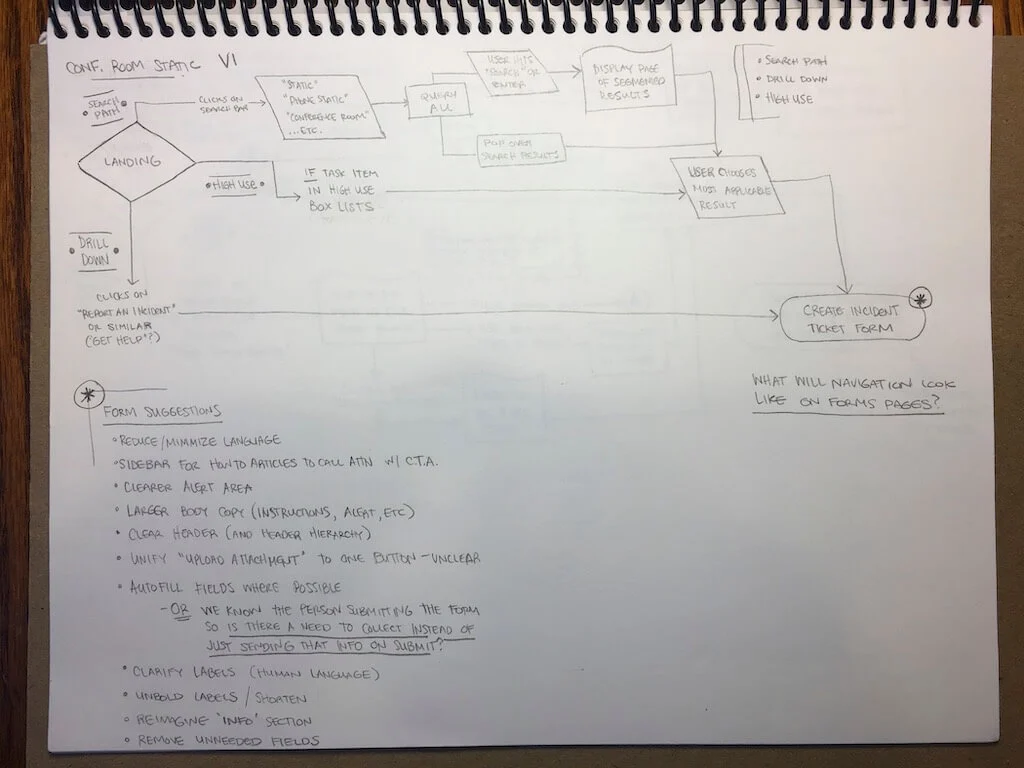 CONF. ROOM STATIC V1
SEARCH
PATH
CLICKS ON
SEARCH BAR
"STATIC"
"PHONE STATIC"
"CONFERENCE ROOM"
...ETC.
QUERY
ALL
USER HITS
"SEARCH" OR
ENTER
DISPLAY PAGE
OF SEGMENTED
RESULTS
• SEARCH PATH
• DRILL DOWN
• HIGH USE
POP OVER
SEARCH RESULTS
LANDING
• HIGH USE •
IF TASK ITEM
IN HIGH USE
BOX LISTS
USER CHOOSES
MOST APPLICABLE
RESULT
• DRILL
DOWN •
CLICKS ON
"REPORT AN INCIDENT"
OR SIMILAR
("GET HELP"?)
CREATE INCIDENT
TICKET FORM
*
WHAT WILL NAVIGATION LOOK
LIKE ON FORMS PAGES?
*
FORM SUGGESTIONS
• REDUCE/MIMMIZE LANGUAGE
• SIDEBAR FOR HOW TO ARTICLES TO CALL ATTN W/ C.T.A.
• CLEARER ALERT AREA
• LARGER BODY COPY (INSTRUCTIONS, ALERT, ETC)
• CLEAR HEADER (AND HEADER HIERARCHY)
• UNIFY "UPLOAD ATTACHMENT" TO ONE BUTTON - UNCLEAR
• AUTOFILL FIELDS WHERE POSSIBLE
- OR WE KNOW THE PERSON SUBMITTING THE FORM
SO IS THERE A NEED TO COLLECT INSTEAD OF
JUST SENDING THAT INFO ON SUBMIT?
• CLARIFY LABELS (HUMAN LANGUAGE)
• UNBOLD LABELS / SHORTEN
• REIMAGINE 'INFO' SECTION
• REMOVE UNNEEDED FIELDS